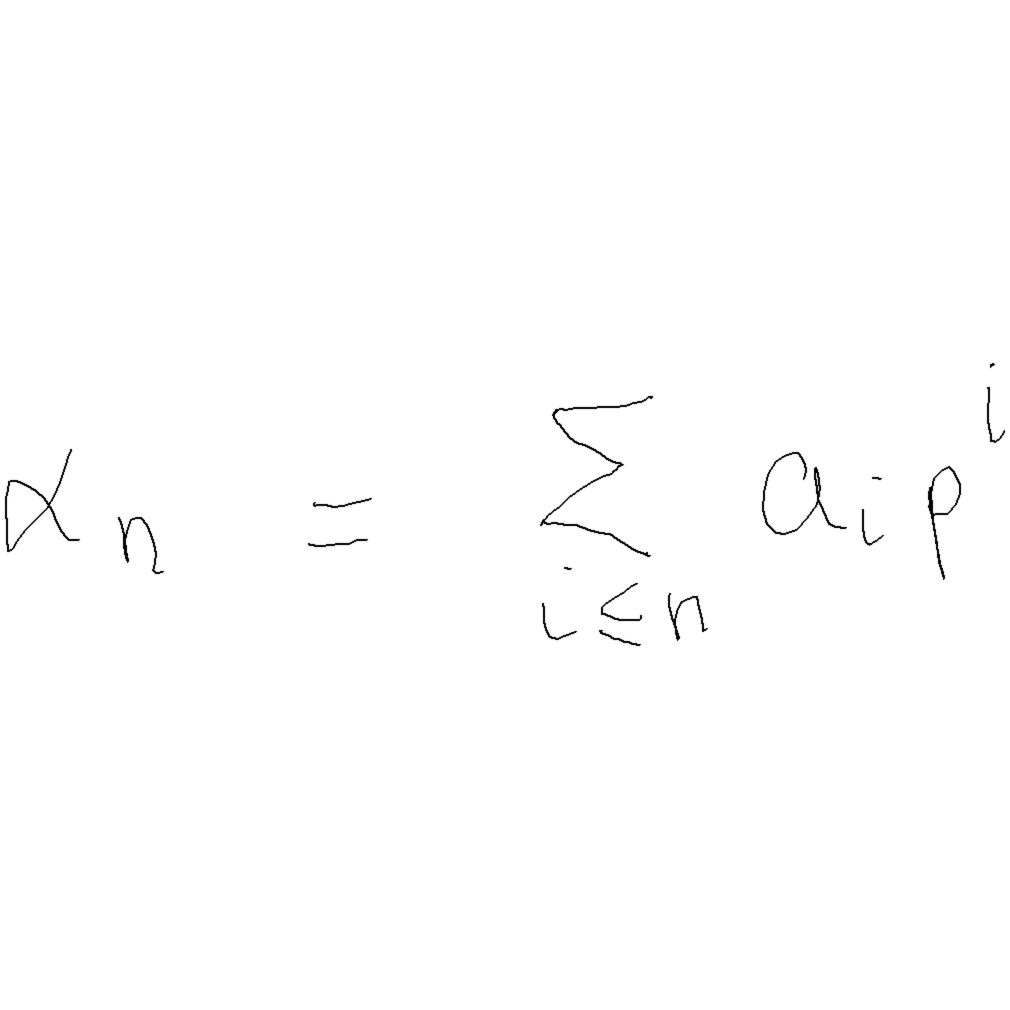 \alpha_n = \sum_{i \leq n} a_i p^i